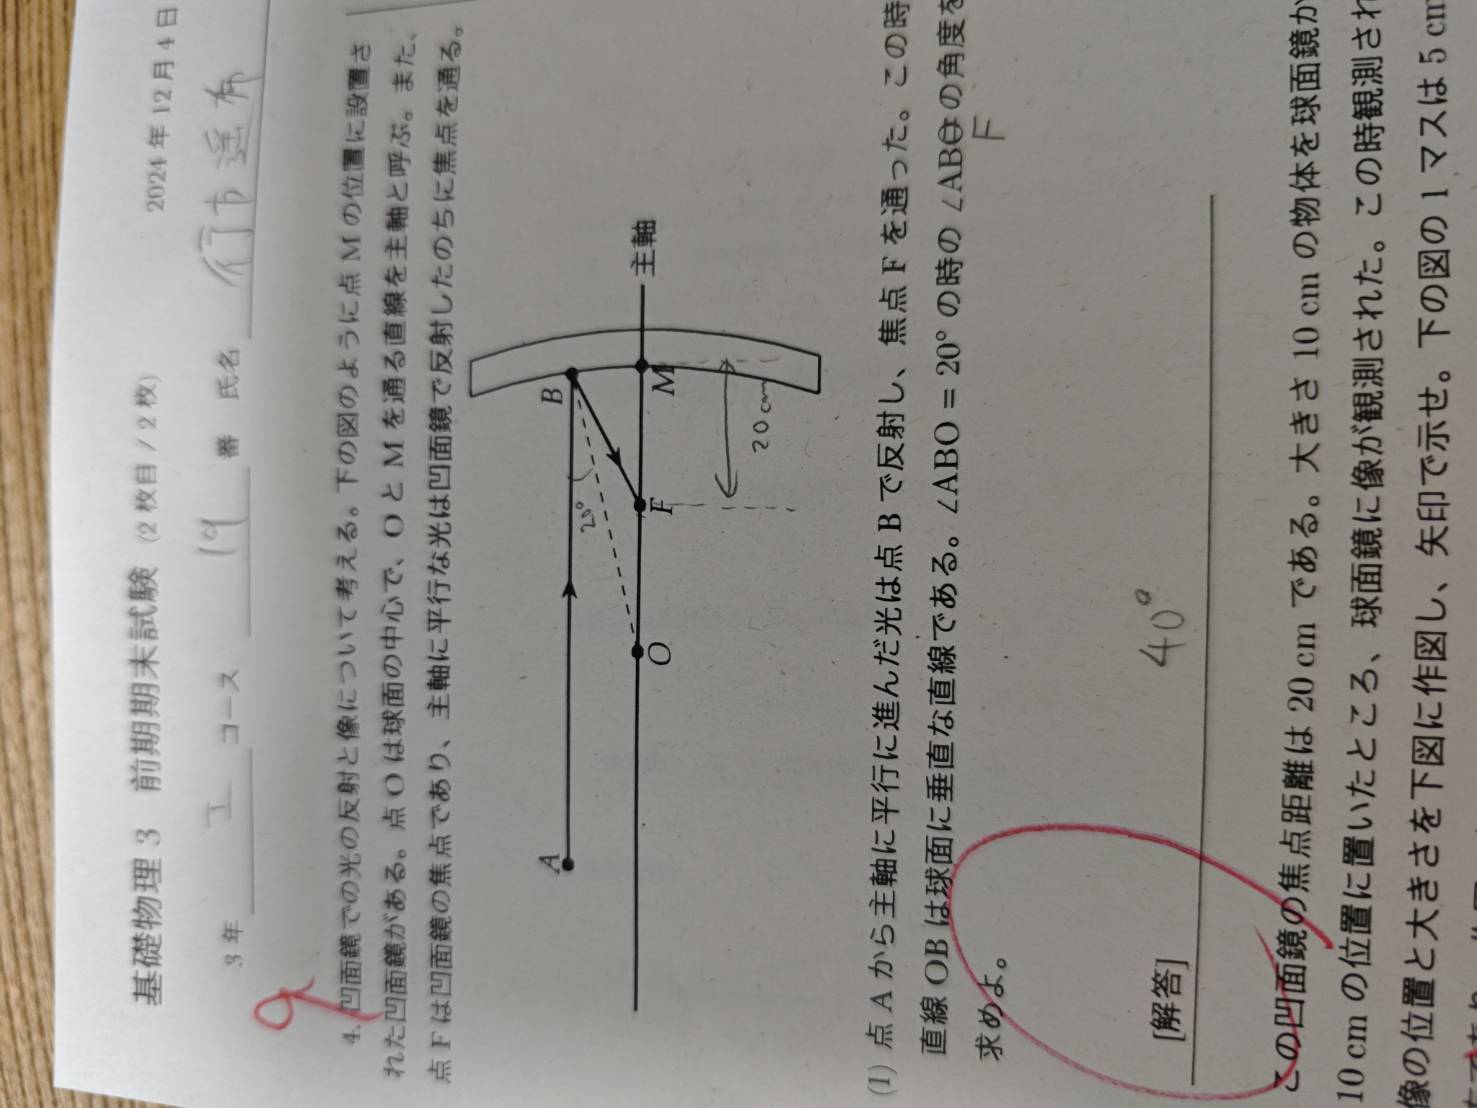 基礎物理 3 前期期末試験 (2 枚目 / 2 枚)
2024 年 12 月 4 日
3 年 エ コース 19 番 氏名 行方遥布
9
4. 凹面鏡での光の反射と像について考える。下の図のように点 M の位置に設置さ
れた凹面鏡がある。点 O は球面の中心で、O と M を通る直線を主軸と呼ぶ。また、
点 F は凹面鏡の焦点であり、主軸に平行な光は凹面鏡で反射したのちに焦点を通る。
A
B
20°
主軸
O
F
M
20cm
(1) 点 A から主軸に平行に進んだ光は点 B で反射し、焦点 F を通った。この時
直線 OB は球面に垂直な直線である。∠ABO = 20° の時の ∠ABO の角度を
F
求めよ。
[解答] 40°
この凹面鏡の焦点距離は 20 cm である。大きさ 10 cm の物体を球面鏡か
10 cm の位置に置いたところ、球面鏡に像が観測された。この時観測され
像の位置と大きさを下図に作図し、矢印で示せ。下の図の 1 マスは 5 cm